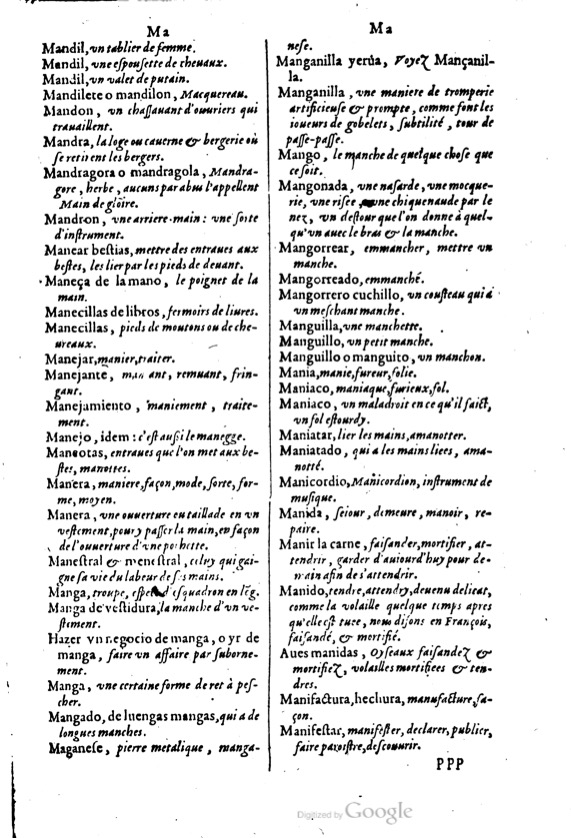 Ma
Mandil, vn tablier de femme.
Mandil, vne espoussette de cheuaux.
Mandil, vn valet de putain.
Mandilete o mandilon, Macquereau.
Mandon, vn chassauant d'ouuriers qui
trauaillent.
Mandra, la loge ou cauerne & bergerie où
se retirent les bergers.
Mandragora o mandragola, Mandra-
gore, herbe, aucuns par abus l'appellent
Main de gloire.
Mandron, vne arriere-main: vne sorte
d'instrument.
Manear bestias, mettre des entraues aux
bestes, les lier par les pieds de deuant.
Maneça de la mano, le poignet de la
main.
Manecillas de libros, fermoirs de liures.
Manecillas, pieds de moutons ou de che-
ureaux.
Manejar, manier, traiter.
Manejante, maniant, remuant, frin-
gant.
Manejamiento, maniement, traite-
ment.
Manejo, idem: c'est aussi le manegge.
Maneotas, entraues que l'on met aux be-
stes, manottes.
Manera, maniere, façon, mode, sorte, for-
me, moyen.
Manera, vne ouuerture ou taillade en vn
vestement, pour y passer la main, en façon
de l'ouuerture d'vne pochette.
Manestral & menestral, celuy qui gai-
gne sa vie du labeur de ses mains.
Manga, troupe, d'esquadron en lēg.
Manga de vestidura, la manche d'vn ve-
stiment.
Hazer vn negocio de manga, o yr de
manga, faire vn affaire par suborne-
ment.
Manga, vne certaine forme de ret à pes-
cher.
Mangado, de luengas mangas, qui a de
longues manches.
Maganese, pierre metalique, manga-
Ma
nese.
Manganilla yerua, Voyez Mançanil-
la.
Manganilla, vne maniere de tromperie
artificieuse & prompte, comme font les
ioueurs de gobelets, subtilité, tour de
passe-passe.
Mango, le manche de quelque chose que
ce soit.
Mangonada, vne nasarde, vne mocque-
rie, vne risee, vne chiquenaude par le
nez, vn destour que l'on donne à quel-
qu'vn auec le bras & la manche.
Mangorrear, emmancher, mettre vn
manche.
Mangorreado, emmanché.
Mangorrero cuchillo, vn cousteau qui a
vn meschant manche.
Manguilla, vne manchette.
Manguillo, vn petit manche.
Manguillo o manguito, vn manchon.
Mania, manie, fureur, folie.
Maniaco, maniaque, furieux, fol.
Maniaco, vn maladroit en ce qu'il faict,
vn fol estourdy.
Maniatar, lier les mains, amanotter.
Maniatado, qui a les mains liees, ama-
notté.
Manicordio, Manicordion, instrument de
musique.
Manida, seiour, demeure, manoir, re-
paire.
Manir la carne, faisander, mortifier, at-
tendrir, garder d'auiourd'huy pour de-
main afin de s'attendrir.
Manido, tendre, attendry, deuenu delicat,
comme la volaille quelque temps apres
qu'elle est tuee, nous disons en François,
faisandé, & mortifié.
Aues manidas, Oyseaux faisandez &
mortifiez, volailles mortifiees & ten-
dres.
Manifactura, hechura, manufacture, fa-
çon.
Manifestar, manifester, declarer, publier,
faire paroistre, descouurir.
PPP
Digitized by Google